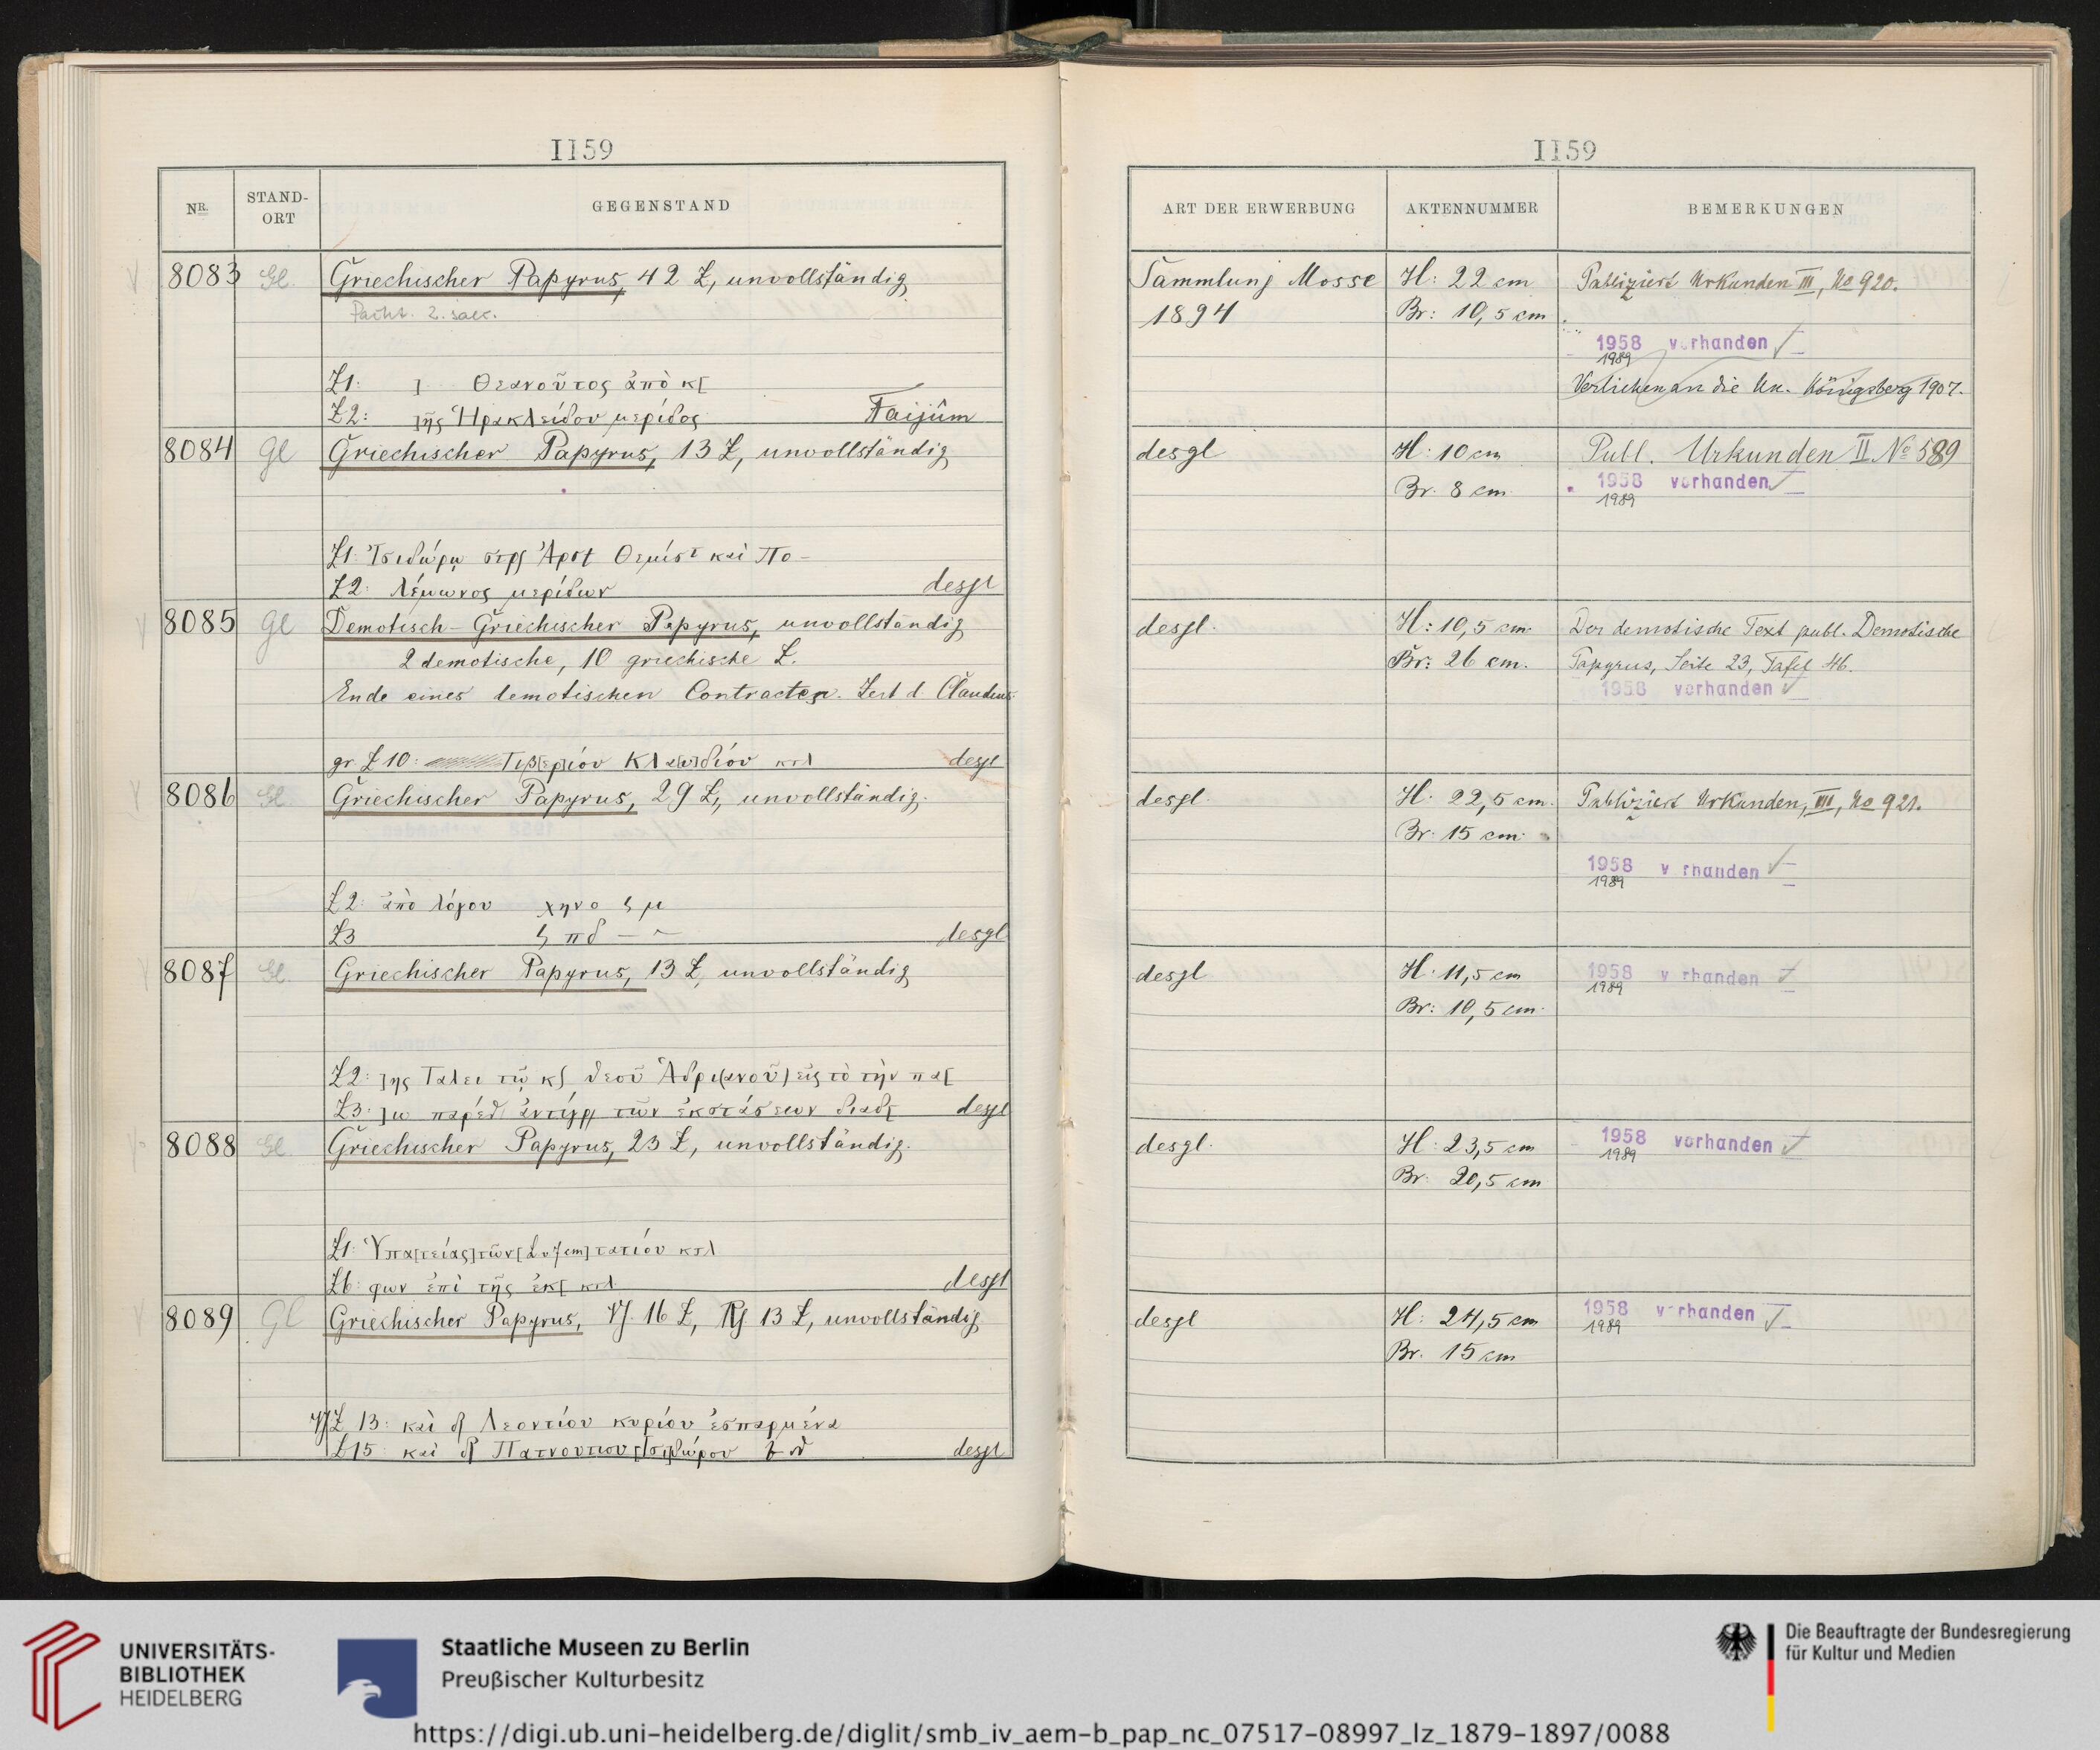 I159
NR. STAND-ORT GEGENSTAND
8083 Gl. Griechischer Papyrus, 42 Z, unvollständig
Pacht. 2. saec.
Z1: ] Θεανοῦτος ἀπὸ κ[
Z2: ]ῆς Ἡρακλείδου μερίδος Faijûm
8084 Gl Griechischer Papyrus, 13 Z, unvollständig
Z1: Ἰσιδώρῳ στρ Ἀρσι Θεμίστ καὶ Πο-
Z2: λέμωνος μερίδων desgl
8085 Gl Demotisch-Griechischer Papyrus, unvollständig
2 demotische, 10 griechische Z.
Ende eines demotischen Contractes. Zeit d Claudius
gr Z 10: Τιβ[ερ]ίου Κλα[υ]δίου κτλ desgl
8086 Gl Griechischer Papyrus, 29 Z, unvollständig.
Z2: ἀπὸ λόγου
Z3 desgl
8087 Gl Griechischer Papyrus, 13 Z, unvollständig
Z2: ]ης τῷ θεοῦ Ἁδρι(ανοῦ) εἰς τὸ τὴν πα[
Z3: ]ω τῶν ἐκστάσεων διαδ[ desgl
8088 Gl Griechischer Papyrus, 23 Z, unvollständig.
Z1: Ὑπα[τείας] τῶν [ κτλ
Z6: φων ἐπὶ τῆς ἐκ[ κτλ desgl
8089 Gl Griechischer Papyrus, Vs. 16 Z, Rs 13 Z, unvollständig
Vs Z 13: καὶ Λεοντίου κυρίου ἐσπαρμένα
Z15 καὶ desgl
I159
ART DER ERWERBUNG AKTENNUMMER BEMERKUNGEN
Sammlung Mosse H: 22 cm Publiziert Urkunden III, No 920.
1894 Br: 10,5 cm
1958 vorhanden
1989
Verliehen an die Un. Königsberg 1907.
desgl H: 10 cm Publ. Urkunden II No 589
Br. 8 cm 1958 vorhanden
1989
desgl. H: 10,5 cm Der demotische Text publ. Demotische
Br: 26 cm. Papyrus, Seite 23, Tafel 46.
1958 vorhanden
desgl. H. 22,5 cm. Publiziert Urkunden, III, No 921.
Br. 15 cm
1958 v rhanden
1989
desgl H: 11,5 cm 1958 v rhanden
1989
Br: 10,5 cm.
desgl. H: 23,5 cm 1958 vorhanden
1989
Br. 20,5 cm
desgl H: 24,5 cm 1958 v rhanden
1989
Br. 15 cm
UNIVERSITÄTS-
BIBLIOTHEK
HEIDELBERG
Staatliche Museen zu Berlin
Preußischer Kulturbesitz
Die Beauftragte der Bundesregierung
für Kultur und Medien
https://digi.ub.uni-heidelberg.de/diglit/smb_iv_aem-b_pap_nc_07517-08997_lz_1879-1897/0088